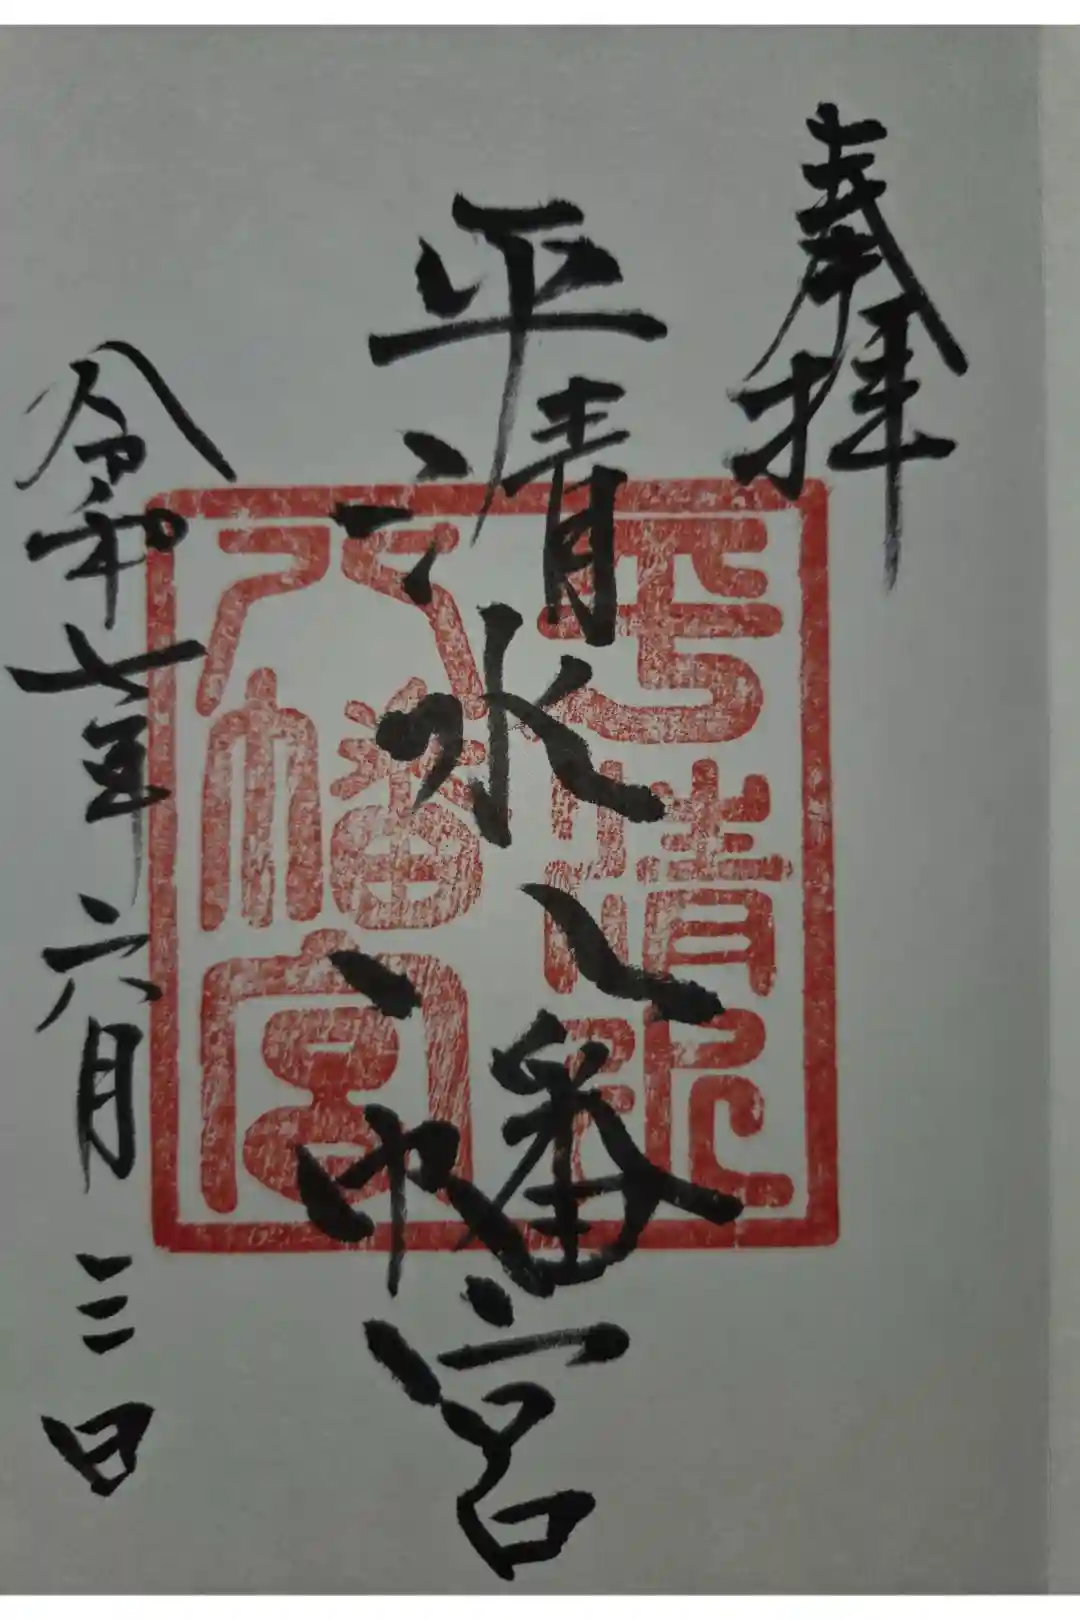 奉拝
平清水八幡宮
令和七年六月三日
平清水
八幡宮